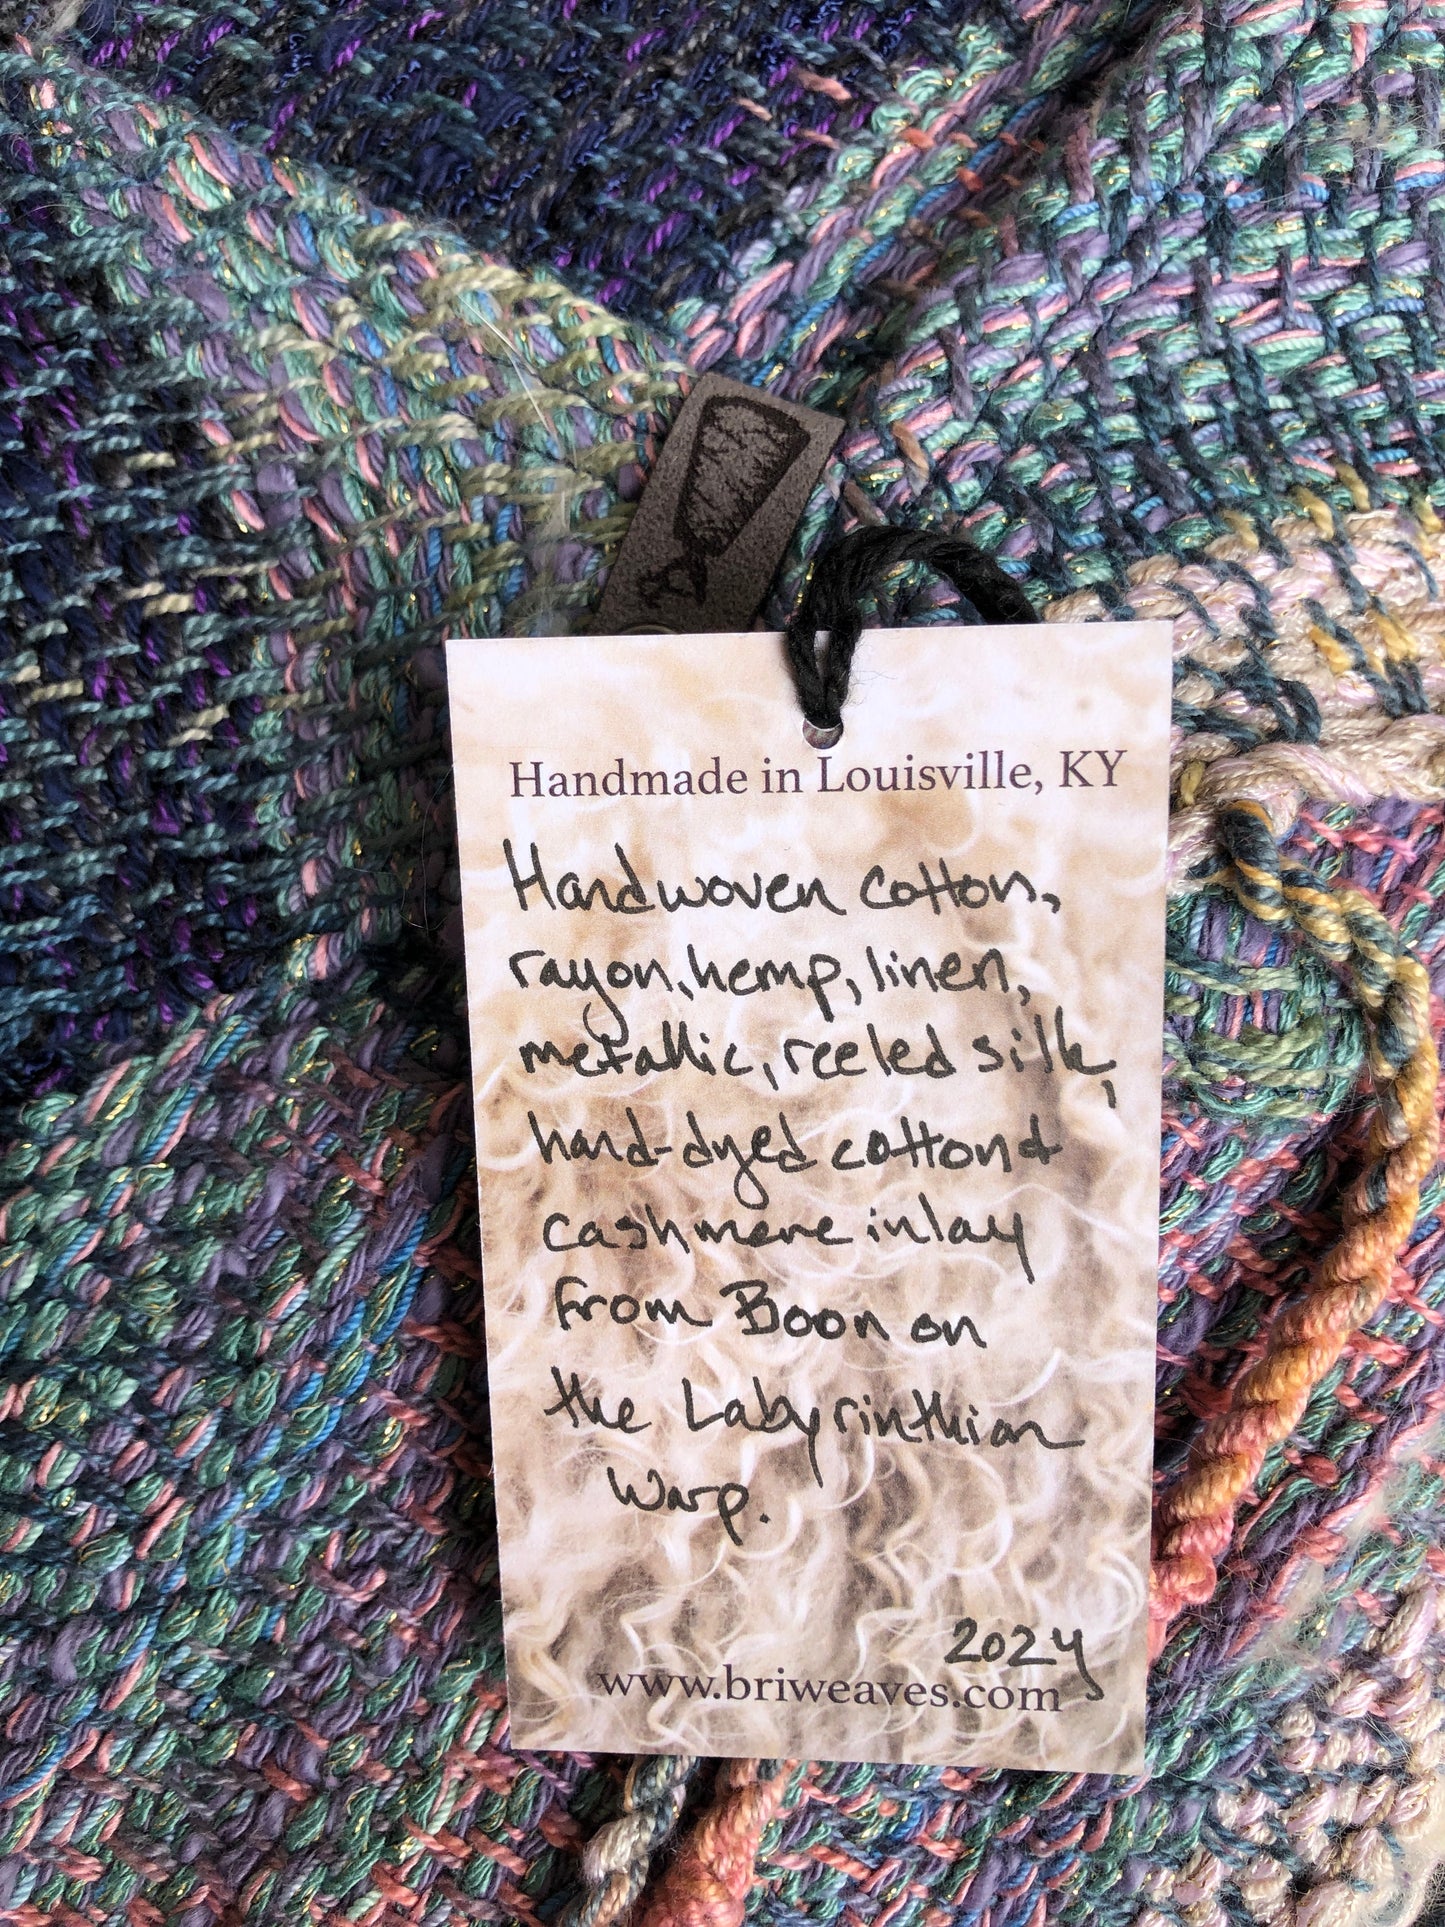 Handmade in Louisville, KY
Handwoven cotton,
rayon, hemp, linen,
metallic, reeled silk,
hand-dyed cotton &
cashmere inlay
from Boon on
the Labyrinthian
Warp.
2024
www.briweaves.com